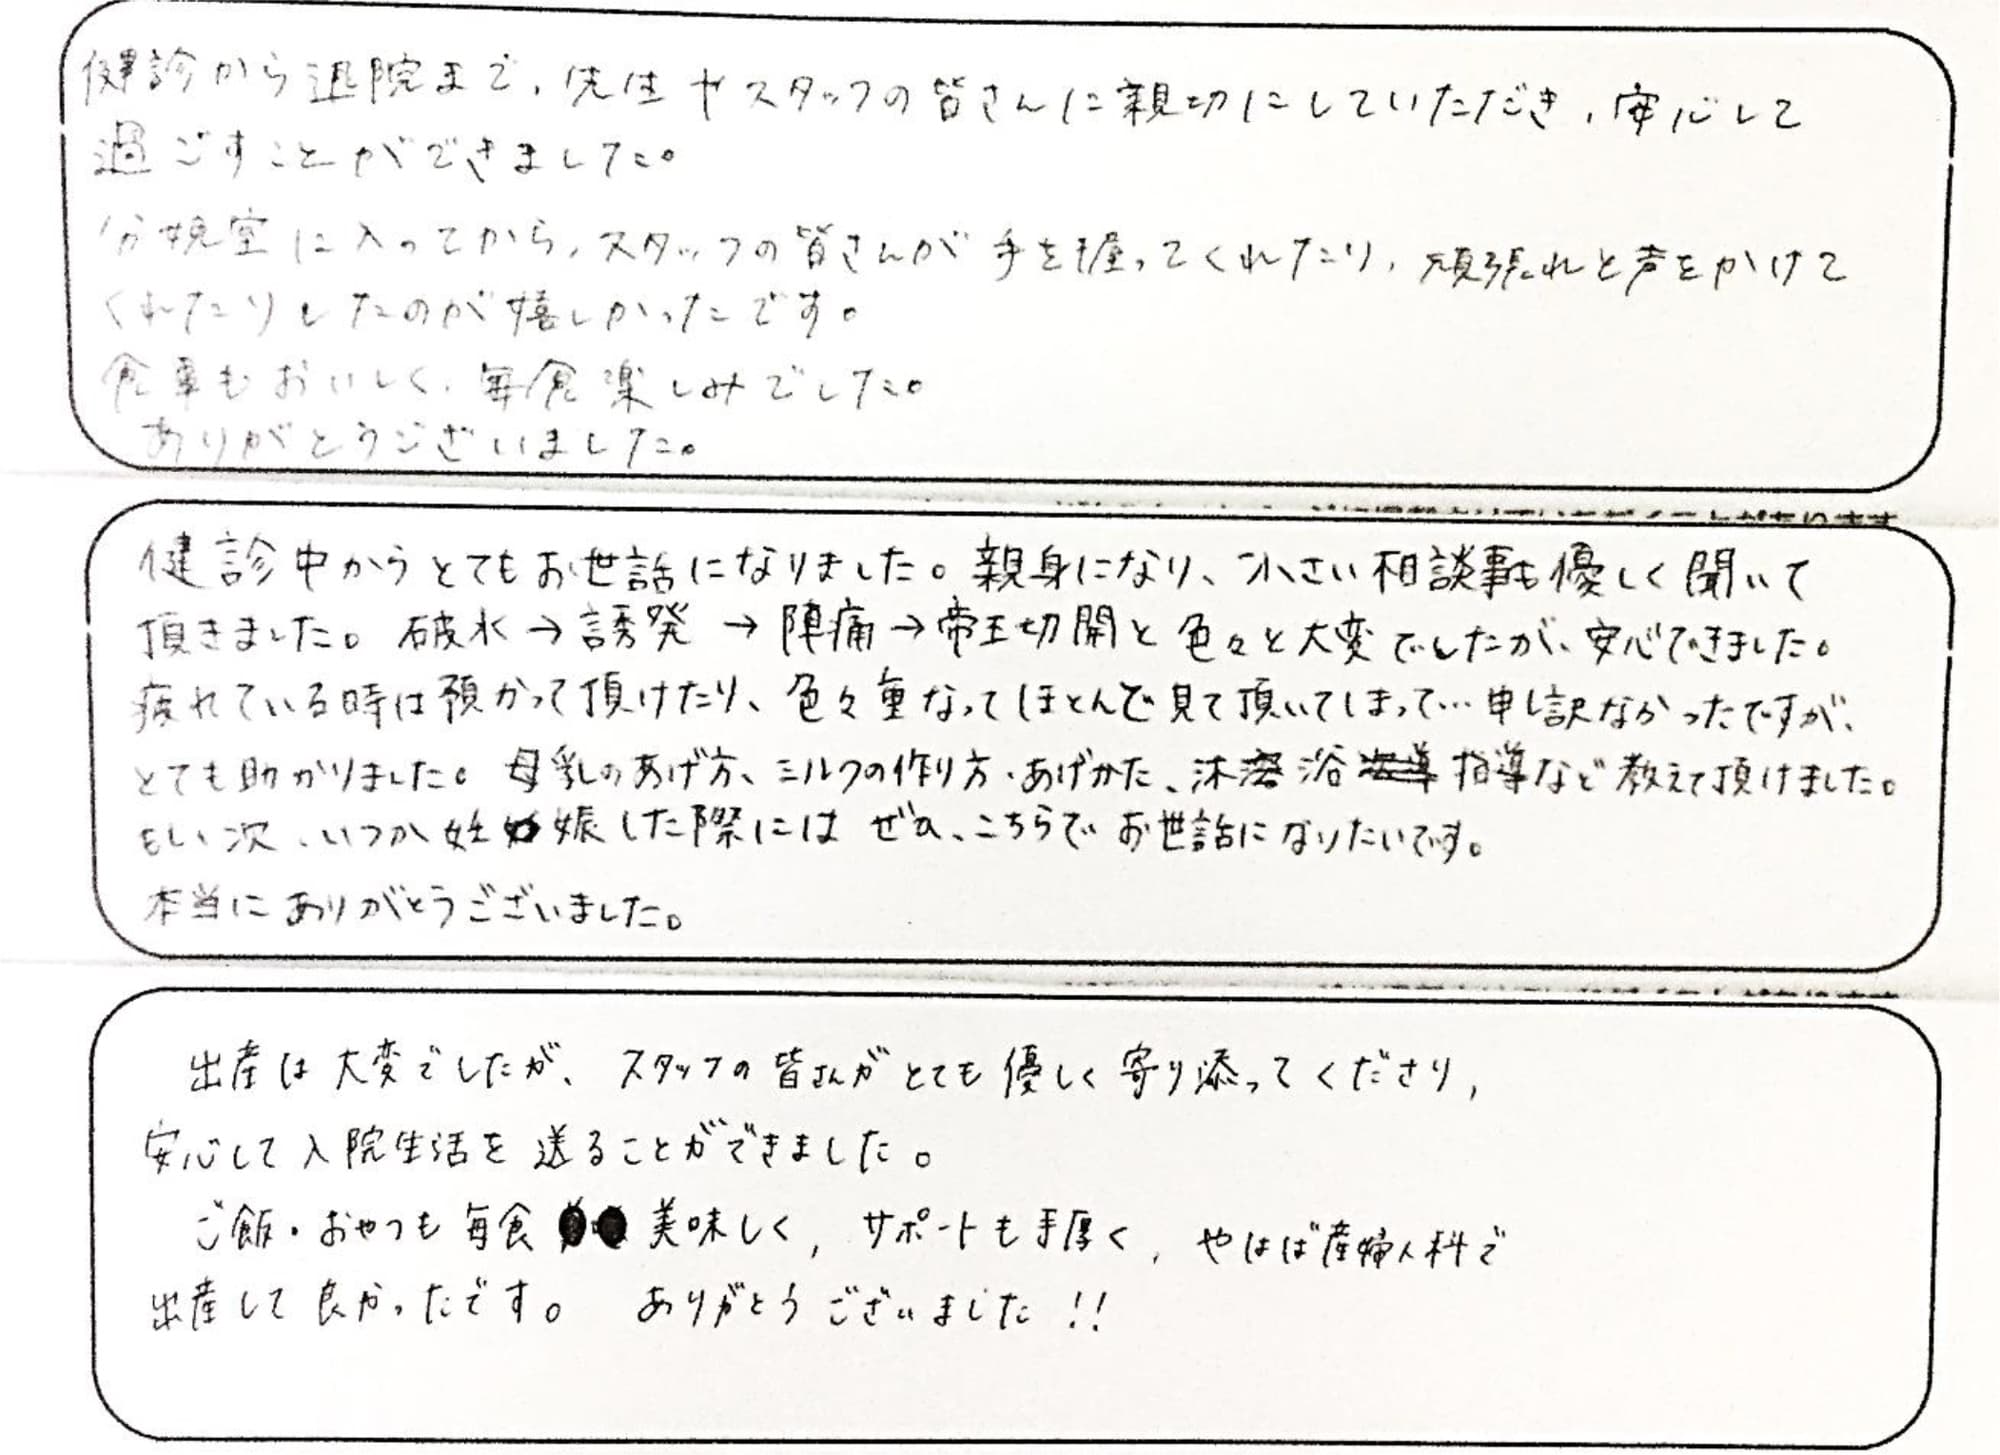 健診から退院まで、先生やスタッフの皆さんに親切にしていただき、安心して
過ごすことができました。
分娩室に入ってから、スタッフの皆さんが手を握ってくれたり、頑張れと声をかけて
くれたりしたのが嬉しかったです。
食事もおいしく、毎食楽しみでした。
ありがとうございました。
健診中からとてもお世話になりました。親身になり、小さい相談事も優しく聞いて
頂きました。破水→誘発→陣痛→帝王切開と色々と大変でしたが、安心できました。
疲れている時は預かって頂けたり、色々重なってほとんど見て頂いてしまって…申し訳なかったですが、
とても助かりました。母乳のあげ方、ミルクの作り方・あげかた、沐浴指導など教えて頂けました。
もし次、いつか妊娠した際にはぜひ、こちらでお世話になりたいです。
本当にありがとうございました。
出産は大変でしたが、スタッフの皆さんがとても優しく寄り添ってくださり、
安心して入院生活を送ることができました。
ご飯・おやつも毎食美味しく、サポートも手厚く、やはば産婦人科で
出産して良かったです。 ありがとうございました!!